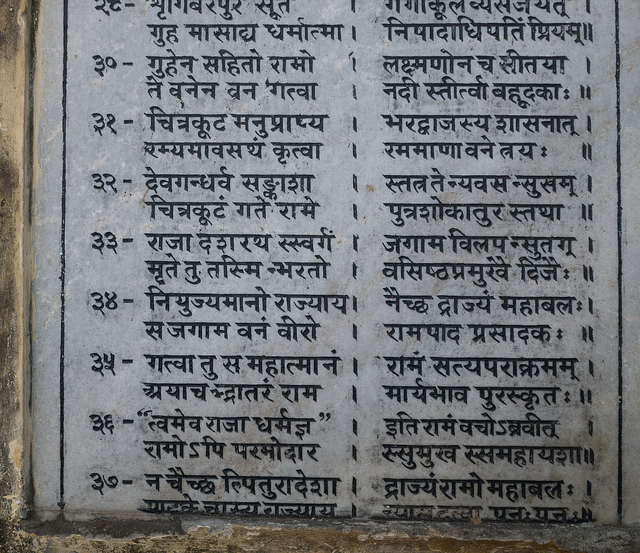 २९- शृंगिबेरपुर सूत । गंगाकूले व्यसर्जयत् ।
गुह मासाद्य धर्मात्मा । निषादाधिपतिं प्रियम् ॥
३०- गुहेन सहितो रामो । लक्ष्मणोन च सीतया ।
ते वनेन वन गत्वा नदी स्तीर्त्वा बहूदकाः ॥
३१- चित्रकूट मनुप्राप्य । भरद्वाजस्य शासनात् ।
रम्यमावसथं कृत्वा । रममाणा वने त्रयः ॥
३२- देवगन्धर्व सङ्काशा । स्तत्र ते न्यवस न्सुखम् ।
चित्रकूटं गते रामे । पुत्रशोकातुर स्तथा ॥
३३- राजा दशरथ स्स्वर्गं । जगाम विलप न्सुतम् ।
मृते तु तस्मि न्भरतो । वसिष्ठप्रमुखै र्द्विजैः ॥
३४- नियुज्यमानो राज्याय । नैच्छ द्राज्यं महाबलः ।
स जगाम वनं वीरो । रामपाद प्रसादकः ॥
३५- गत्वा तु स महात्मानं । रामं सत्यपराक्रमम् ।
अयाच द्भ्रातरं राम । मार्यभाव पुरस्कृतः ॥
३६- “त्वमेव राजा धर्मज्ञ” । इति रामं वचोऽब्रवीत् ।
रामोऽपि परमोदार । स्सुमुख स्समहायशा ॥
३७- न चैच्छ त्पितुरादेशा । द्राज्यं रामो महाबलः ।
पादुके चास्य राज्याय । पुनः पुनः ॥